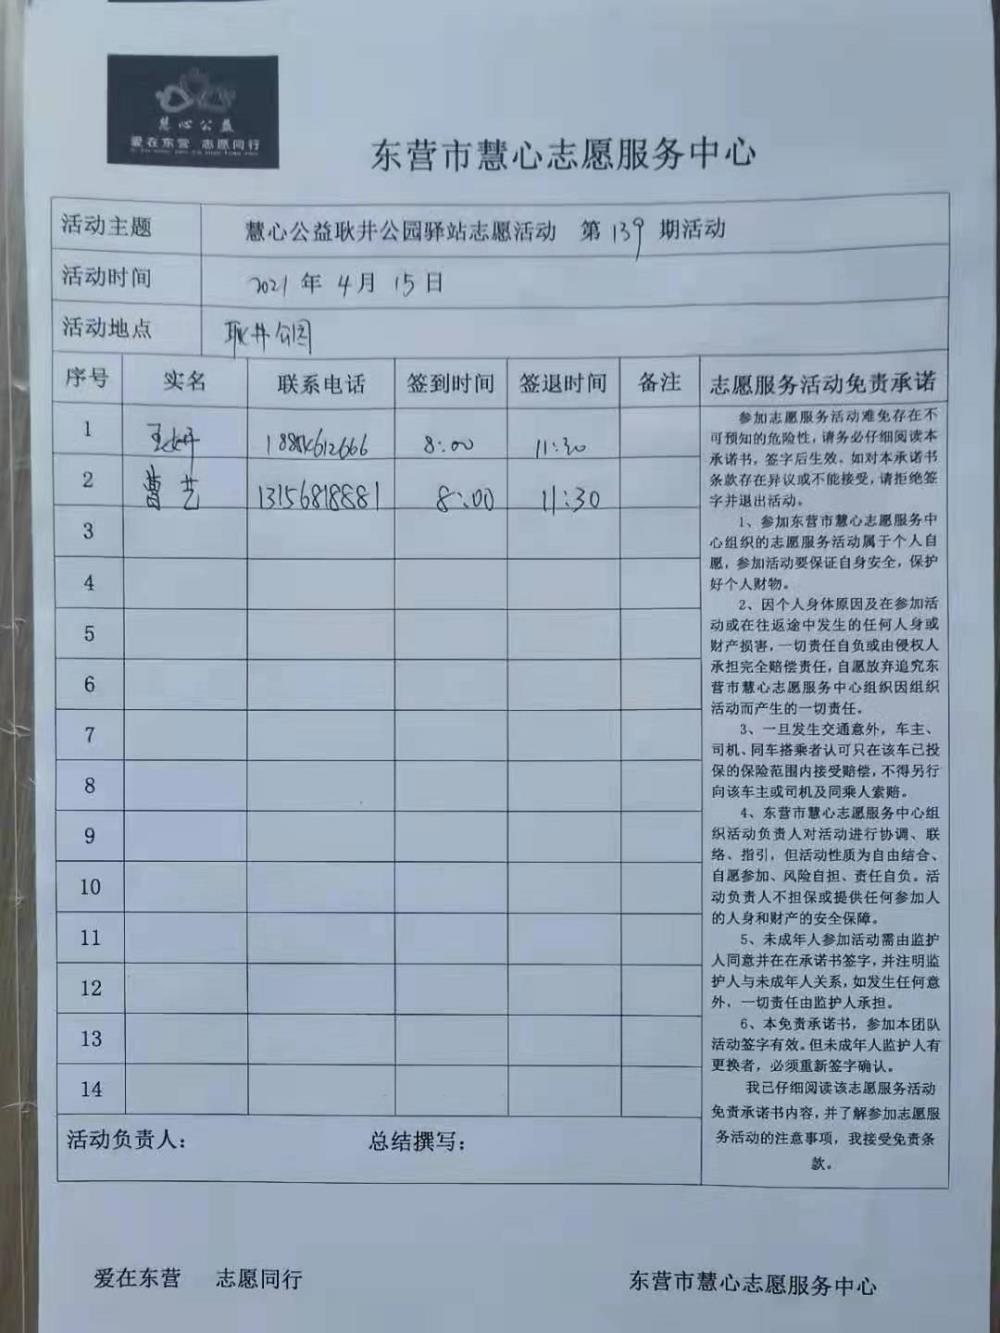 慧心公益
爱在东营 志愿同行
东营市慧心志愿服务中心
活动主题 慧心公益耿井公园驿站志愿活动 第139期活动
活动时间 2021年4月15日
活动地点 耿井公园
序号 实名 联系电话 签到时间 签退时间 备注 志愿服务活动免责承诺
1 王妍 8:00 11:30
2 曹艺 13156818881 8:00 11:30
3
4
5
6
7
8
9
10
11
12
13
14
参加志愿服务活动难免存在不
可预知的危险性，请务必仔细阅读本
承诺书，签字后生效。如对本承诺书
条款存在异议或不能接受，请拒绝签
字并退出活动。
1、参加东营市慧心志愿服务中
心组织的志愿服务活动属于个人自
愿，参加活动要保证自身安全，保护
好个人财物。
2、因个人身体原因及在参加活
动或在往返途中发生的任何人身或
财产损害，一切责任自负或由侵权人
承担完全赔偿责任，自愿放弃追究东
营市慧心志愿服务中心组织因组织
活动而产生的一切责任。
3、一旦发生交通意外，车主、
司机、同车搭乘者认可只在该车已投
保的保险范围内接受赔偿，不得另行
向该车主或司机及同乘人索赔。
4、东营市慧心志愿服务中心组
织活动负责人对活动进行协调、联
络、指引，但活动性质为自由结合、
自愿参加、风险自担、责任自负。活
动负责人不担保或提供任何参加人
的人身和财产的安全保障。
5、未成年人参加活动需由监护
人同意并在在承诺书签字，并注明监
护人与未成年人关系，如发生任何意
外，一切责任由监护人承担。
6、本免责承诺书，参加本团队
活动签字有效。但未成年人监护人有
更换者，必须重新签字确认。
我已仔细阅读该志愿服务活动
免责承诺书内容，并了解参加志愿服
务活动的注意事项，我接受免责条
款。
活动负责人： 总结撰写：
爱在东营 志愿同行 东营市慧心志愿服务中心